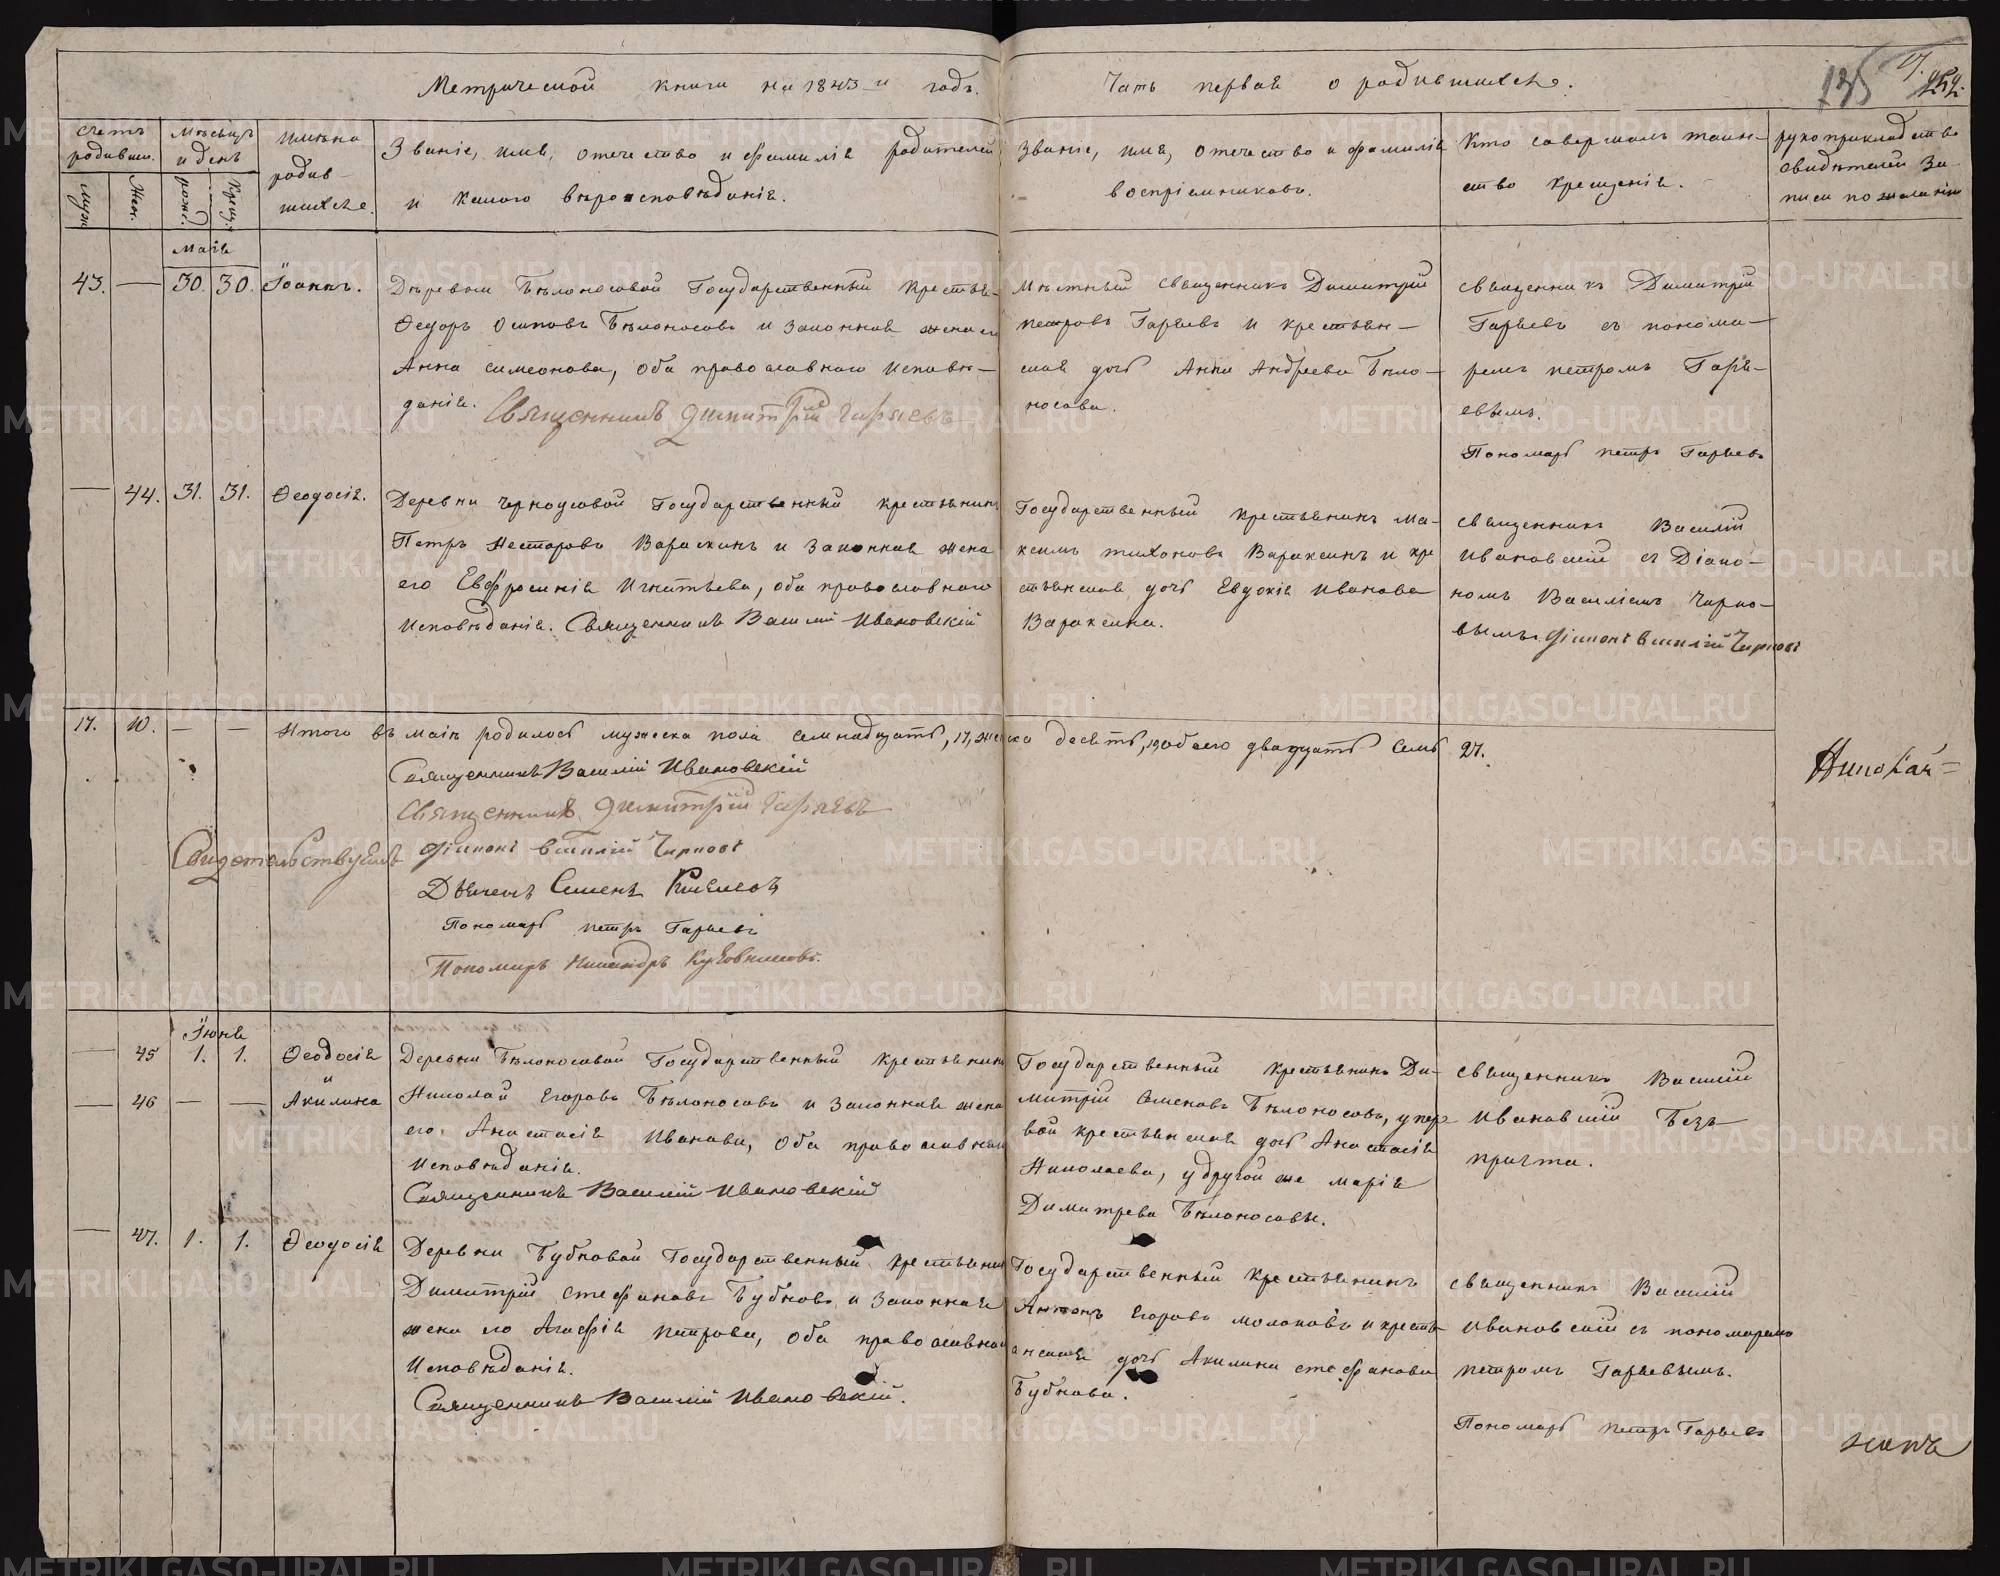 Метрической книги на 1843-й годъ.
Часть первая о родившихся.
счетъ родивши.
Мѣсяцъ и день
имяна родив-
шихся.
Званіе, имя, отечество и фамилія родителей
и какого вѣроисповѣданія.
Званіе, имя, отечество и фамилія
воспріемниковъ.
Кто совершалъ таин-
ство крещенія.
рукоприкладство
свидѣтелей за-
писи по желанію
Муж.
Жен.
рожд.
Крещ.
Маія
43. — 30. 30. Іоаннъ.
Деревни Бѣлоносовой Государственный крестья-
Ѳедоръ Осиповъ Бѣлоносовъ и законная жена его
Анна Симеонова, оба православнаго исповѣ-
данія. Священникъ Димитрій Гаряевъ
Мѣстный священникъ Димитрій
Петровъ Гаряевъ и крестьян-
ская дочь Анна Андреева Бѣло-
носова.
священникъ Димитрій
Гаряевъ съ понома-
ремъ Петромъ Гаря-
евымъ.
Пономарь Петръ Гаряевъ
— 44. 31. 31. Ѳеодосія.
Деревни Черноусовой Государственный крестьянинъ
Петръ Несторовъ Вараксинъ и законная жена
его Евфросинія Игнатьева, оба православнаго
исповѣданія. Священникъ Василій Ивановскій
Государственный крестьянинъ Ма-
ксимъ Тихоновъ Вараксинъ и кре
стьянская дочь Евдокія Иванова
Вараксина.
священникъ Василій
Ивановскій съ Діако-
номъ Василіемъ Чирко-
вымъ. Діаконъ Василій Чирковъ
17. 10. — — Итого въ маіѣ родилось мужеска пола семнадцать, 17, женска десять, 10 обоего двадцать семь 27.
Священникъ Василій Ивановскій
Священникъ Димитрій Гаряевъ
Свидетельствуемъ
Діаконъ Василій Чирковъ
Дьячекъ Семенъ
Пономарь Петръ Гаряевъ
Пономарь Никандръ
Николай
Іюня
— 45 1. 1. Ѳеодосія
и
— 46 — — Акилина
Деревни Бѣлоносовой Государственный крестьянинъ
Николай Егоровъ Бѣлоносовъ и законная жена
его Анастасія Иванова, оба православнаго
исповѣданія.
Священникъ Василій Ивановскій
Государственный крестьянинъ Ди-
митрій Семеновъ Бѣлоносовъ, у пер-
вой крестьянская дочь Анастасія
Николаева, у другой же Марія
Димитрева Бѣлоносовы.
священникъ Василій
Ивановскій безъ
причта.
— 47. 1. 1. Ѳеодосія
Деревни Бубновой Государственный крестьянинъ
Димитрій Стефановъ Бубновъ и законная
жена его Агафія Петрова, оба православнаго
исповѣданія.
Священникъ Василій Ивановскій.
Государственный крестьянинъ
Антонъ Егоровъ Молоковъ и кресть-
янская дочь Акилина Стефанова
Бубнова.
священникъ Василій
Ивановскій съ пономаремъ
Петромъ Гаряевымъ.
Пономарь Петръ Гаряевъ